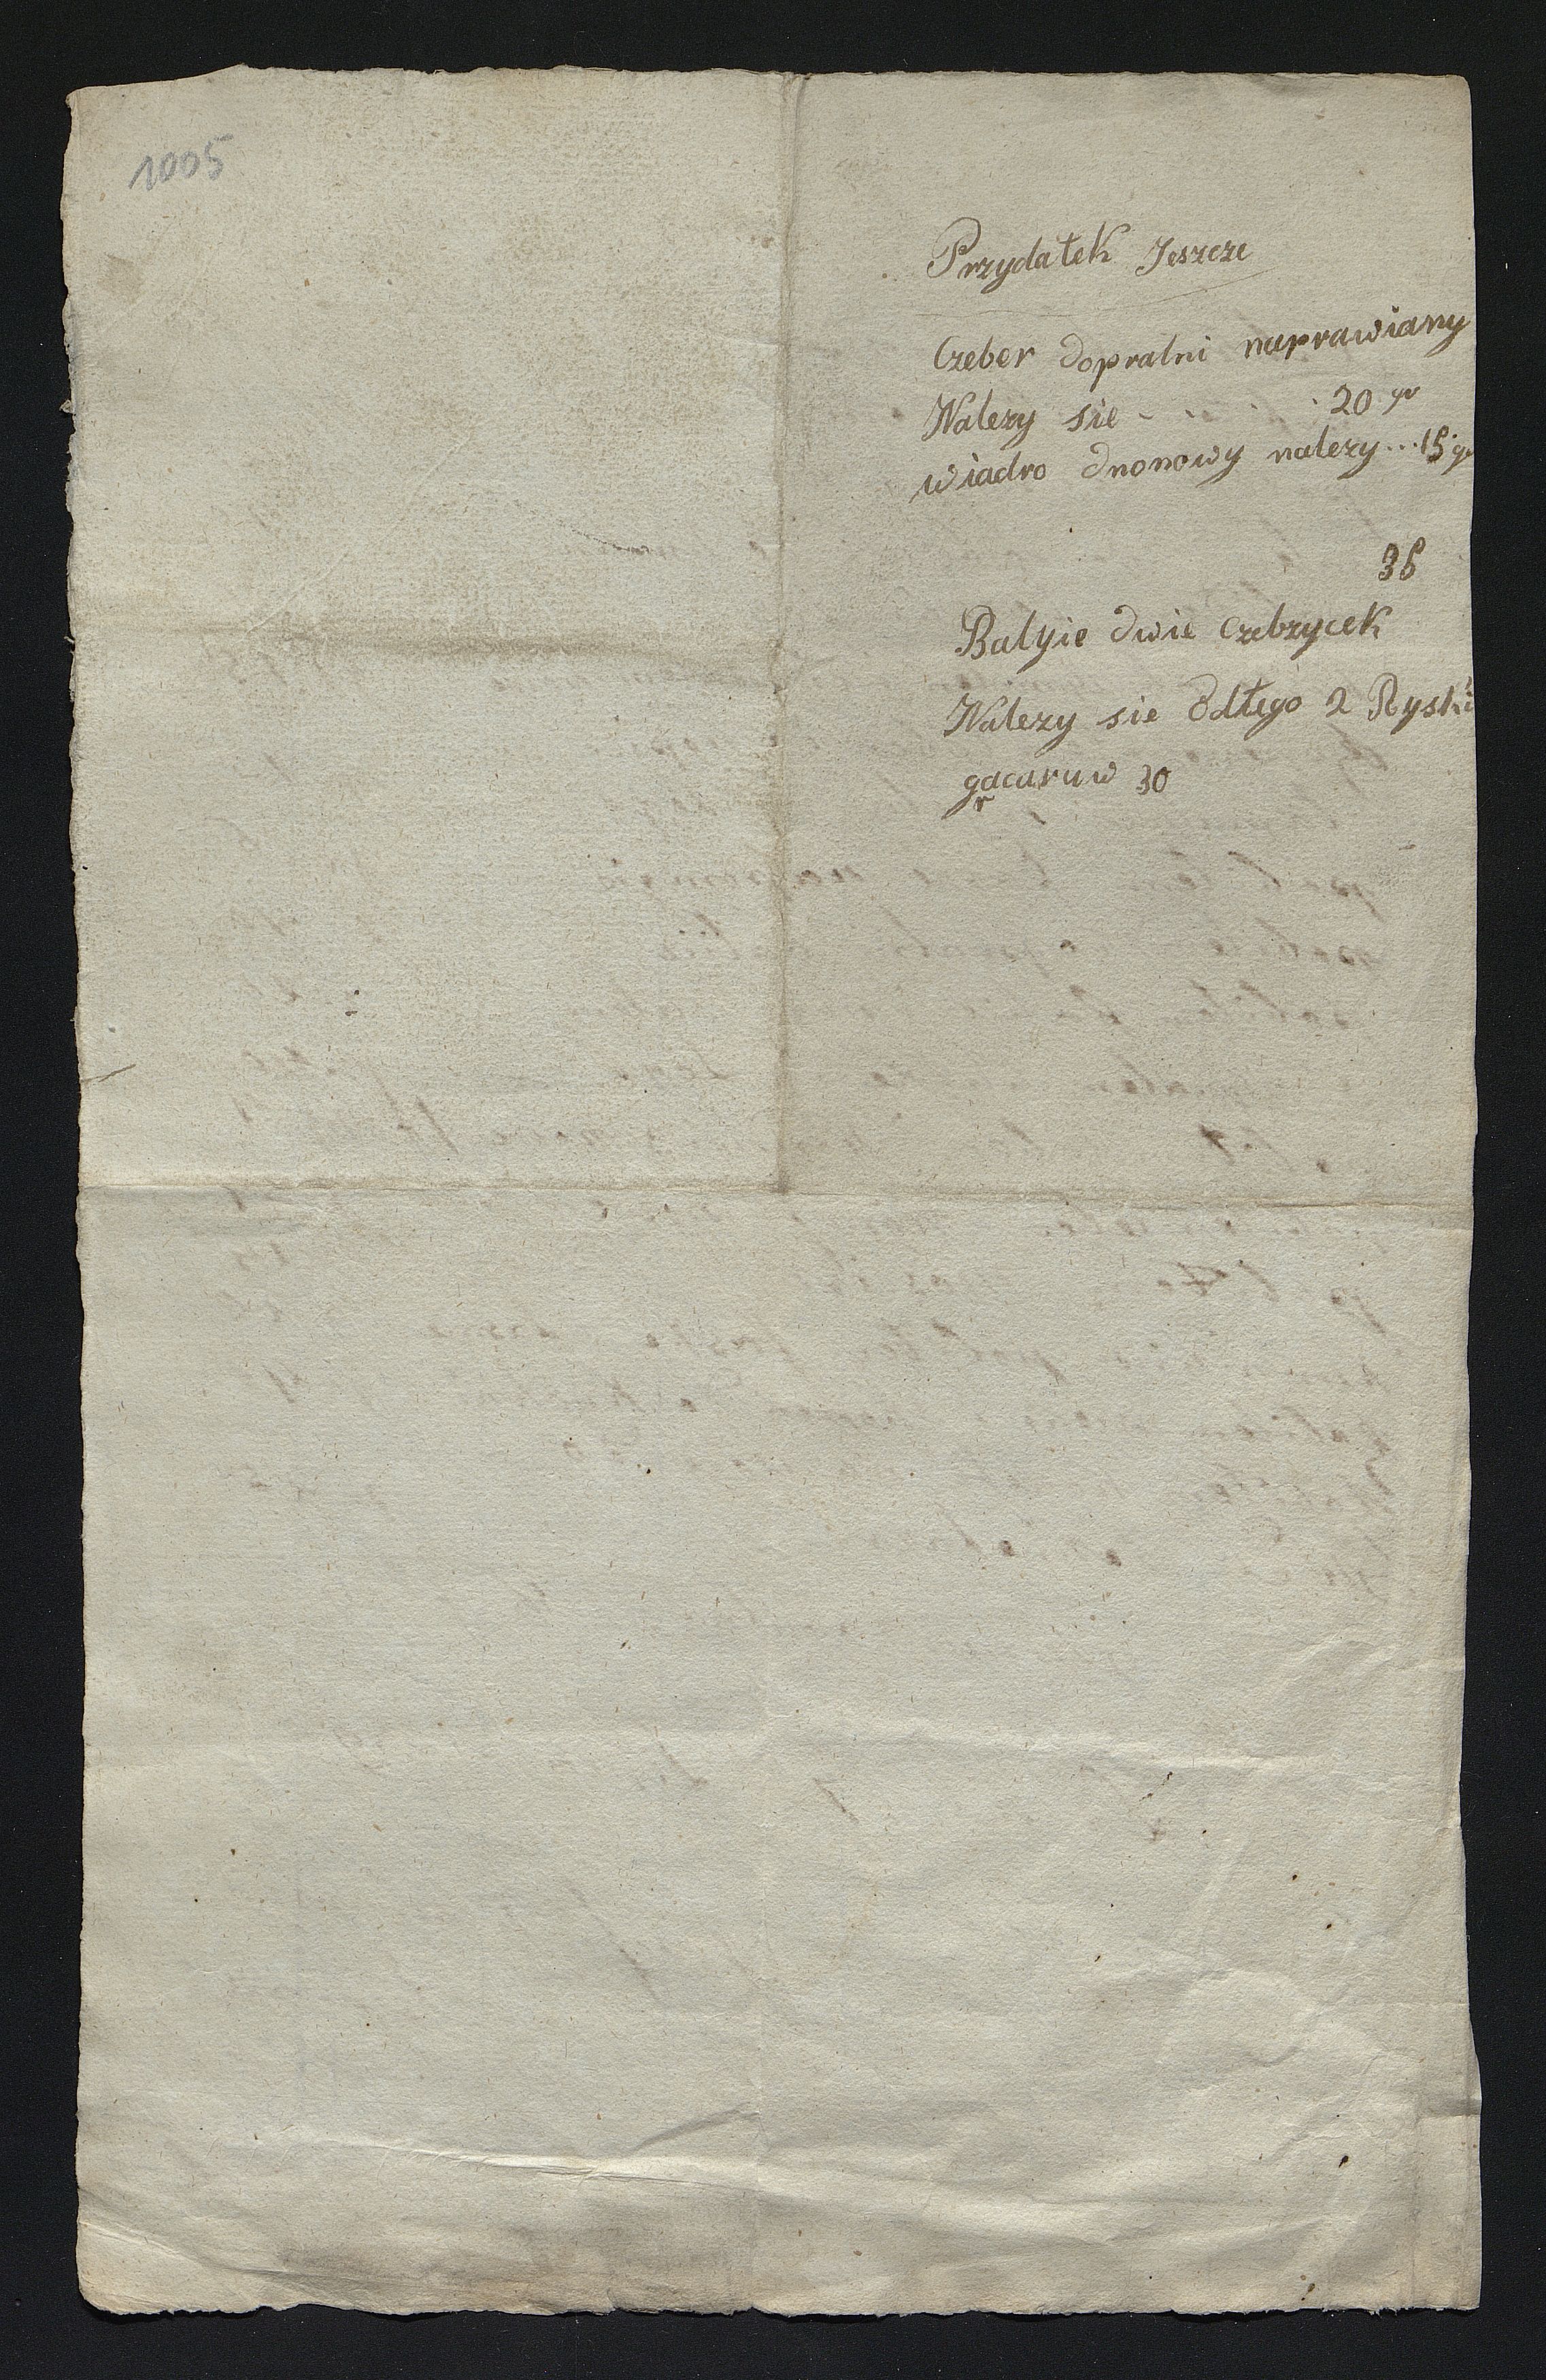 1005
Przydatek Jeszcze
Czeber dopralni naprawiany
Nalezy sie - - - - 20 gr
wiadro dnonowy nalezy...15 gr
35
Balyie dwie Czebrzycek
Nalezy sie Odtego 2 Ryski
30